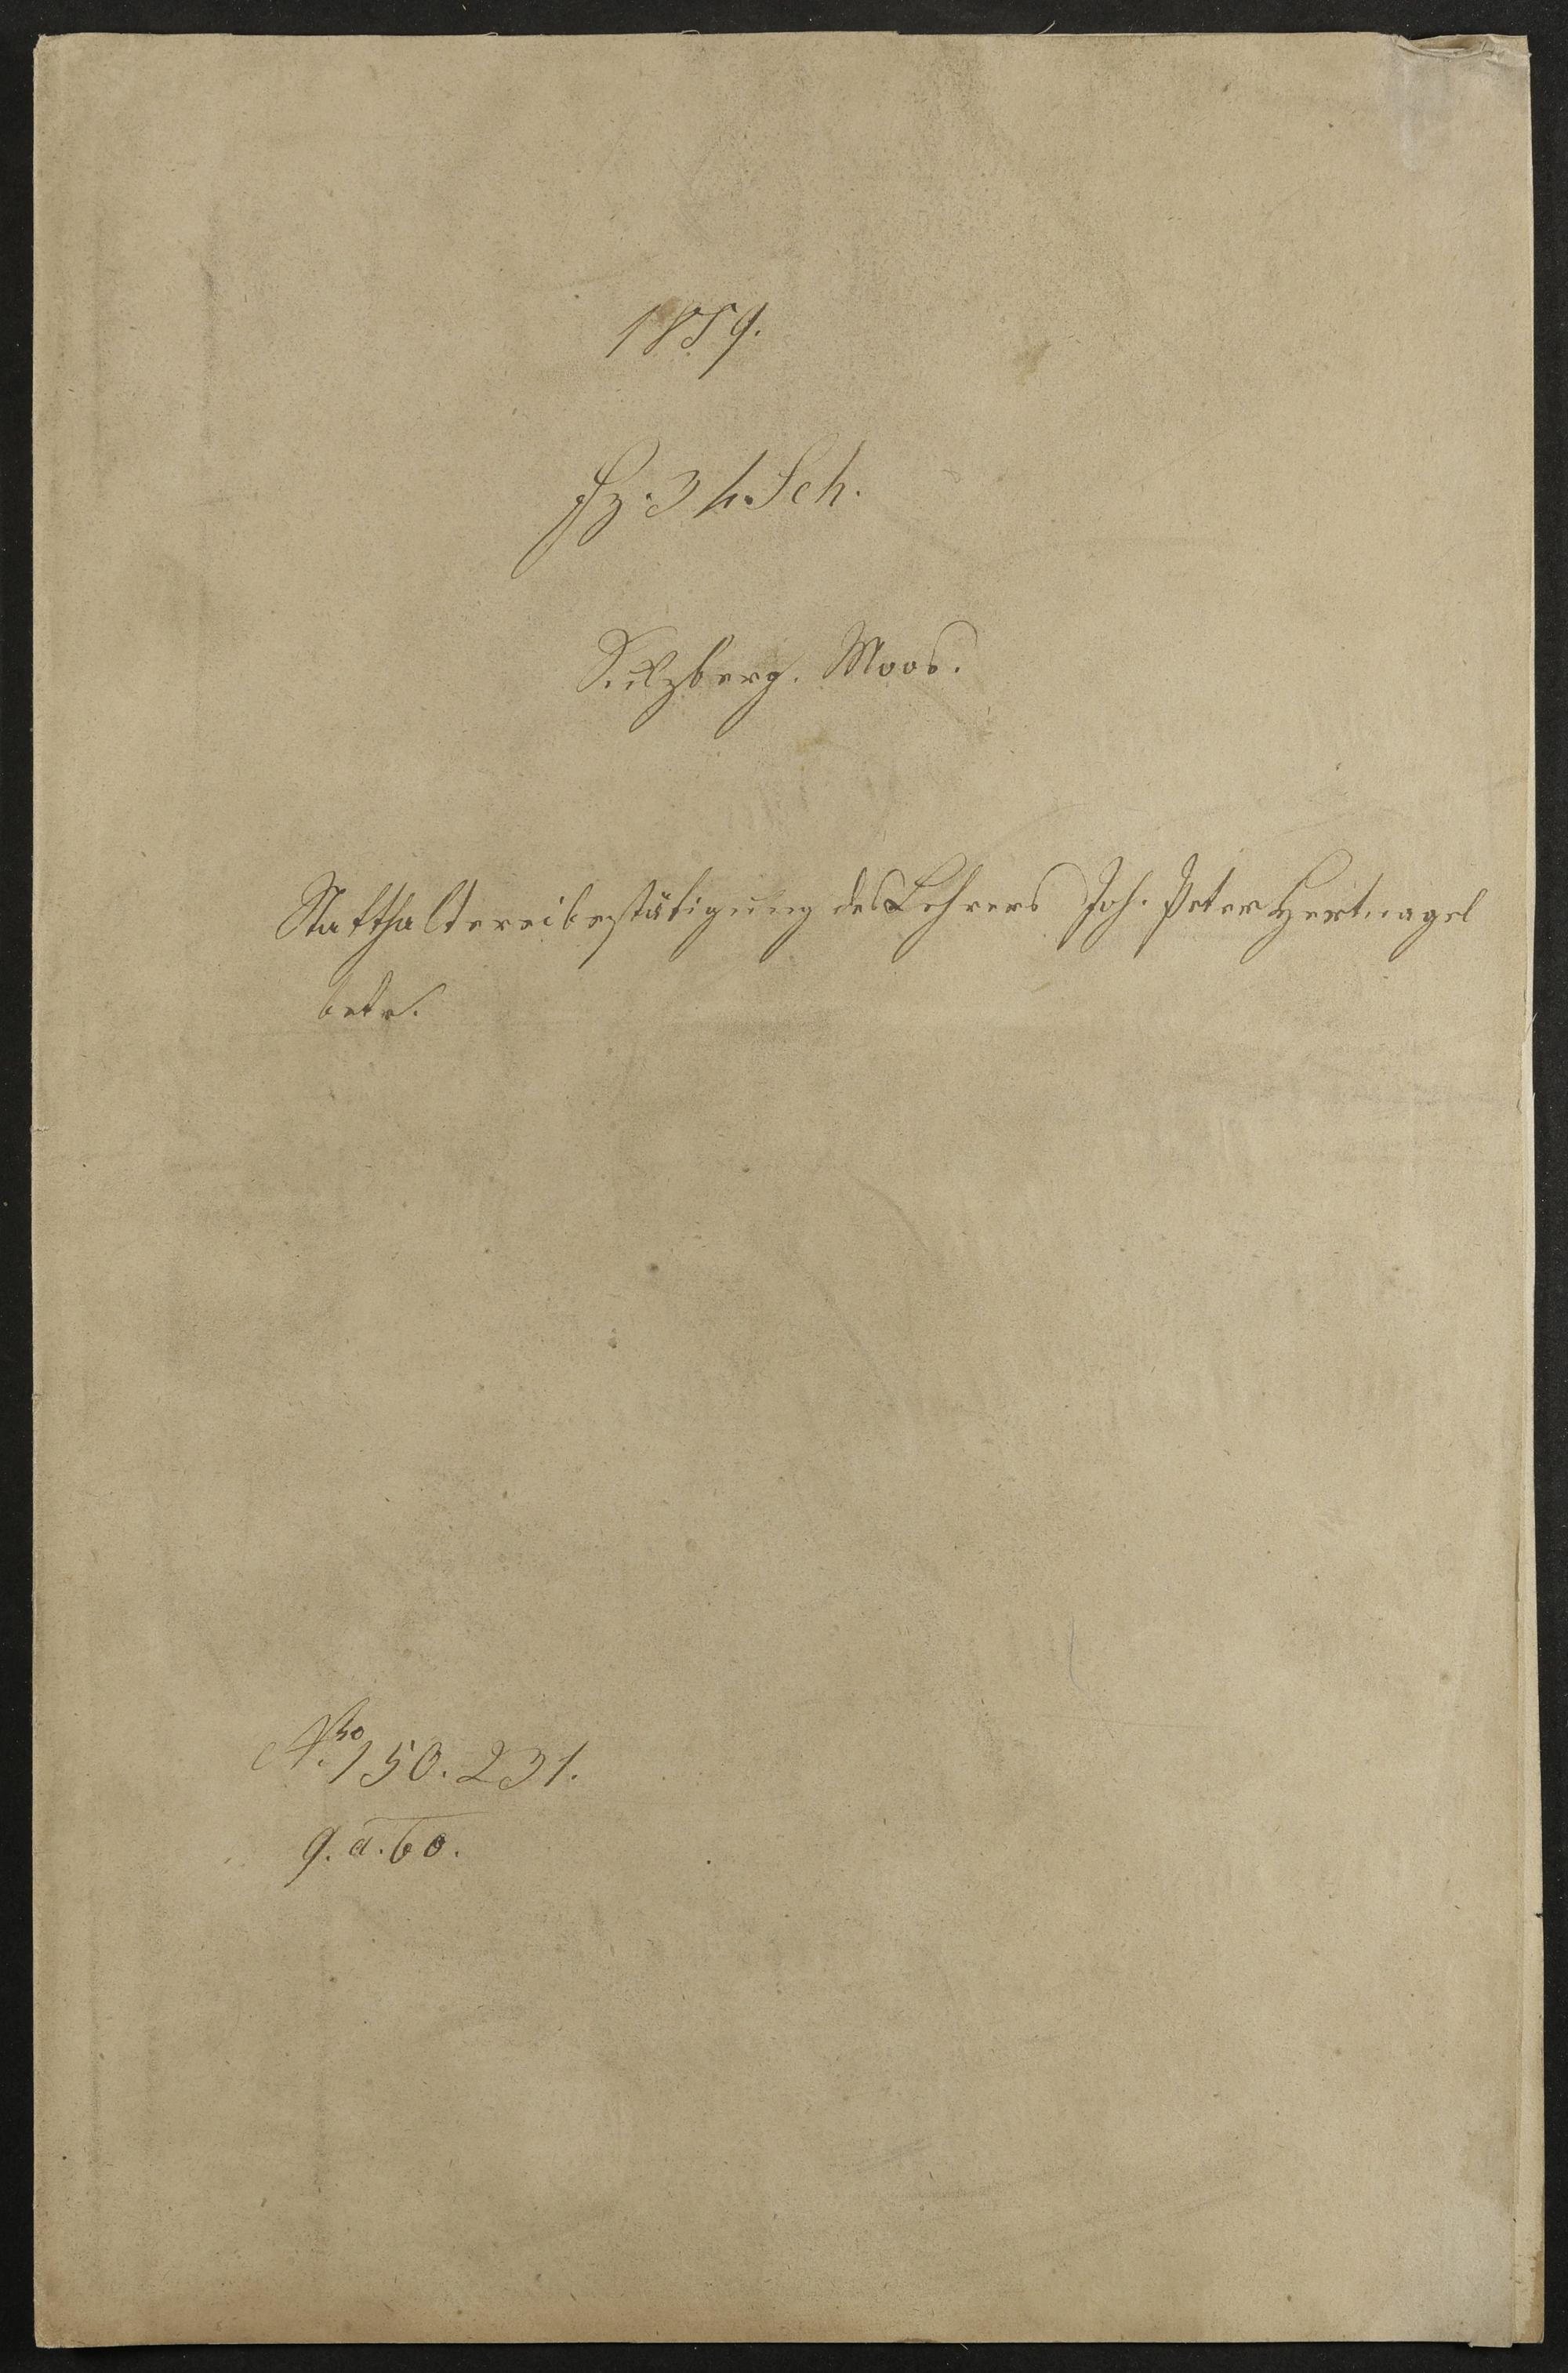 1859.
Fz. 3 h. Sch.
Sulzberg. Moos.
Statthaltereibestätigung des Lehrers Joh. Peter Hertnagel
betr.
Nro 150. 231.
9. a. 60.